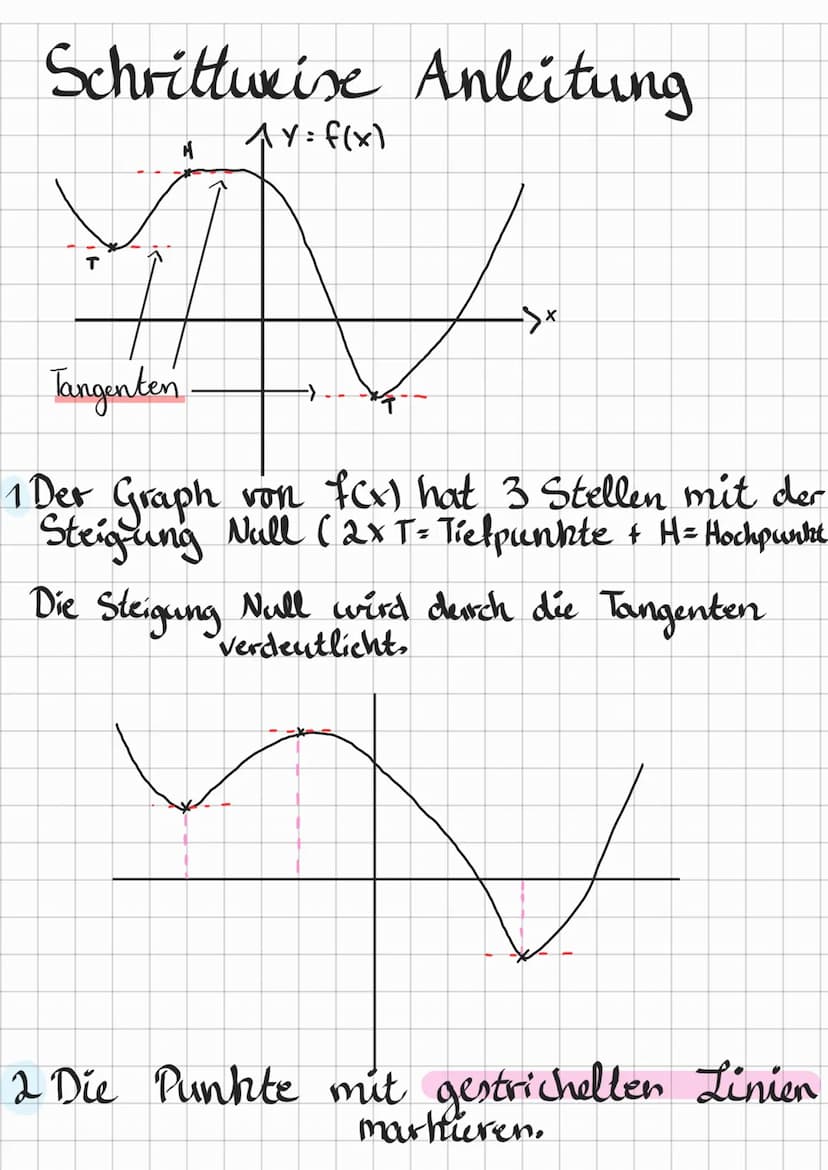 Schrittweise Anleitung
y = f(x)
H
T
x
Tangenten
T
1 Der Graph von f(x) hat 3 Stellen mit der
Steigung Null ( 2x T= Tiefpunkte + H= Hochpunkt
Die Steigung Null wird durch die Tangenten
verdeutlicht.
2 Die Punkte mit gestrichelten Linien
markieren.